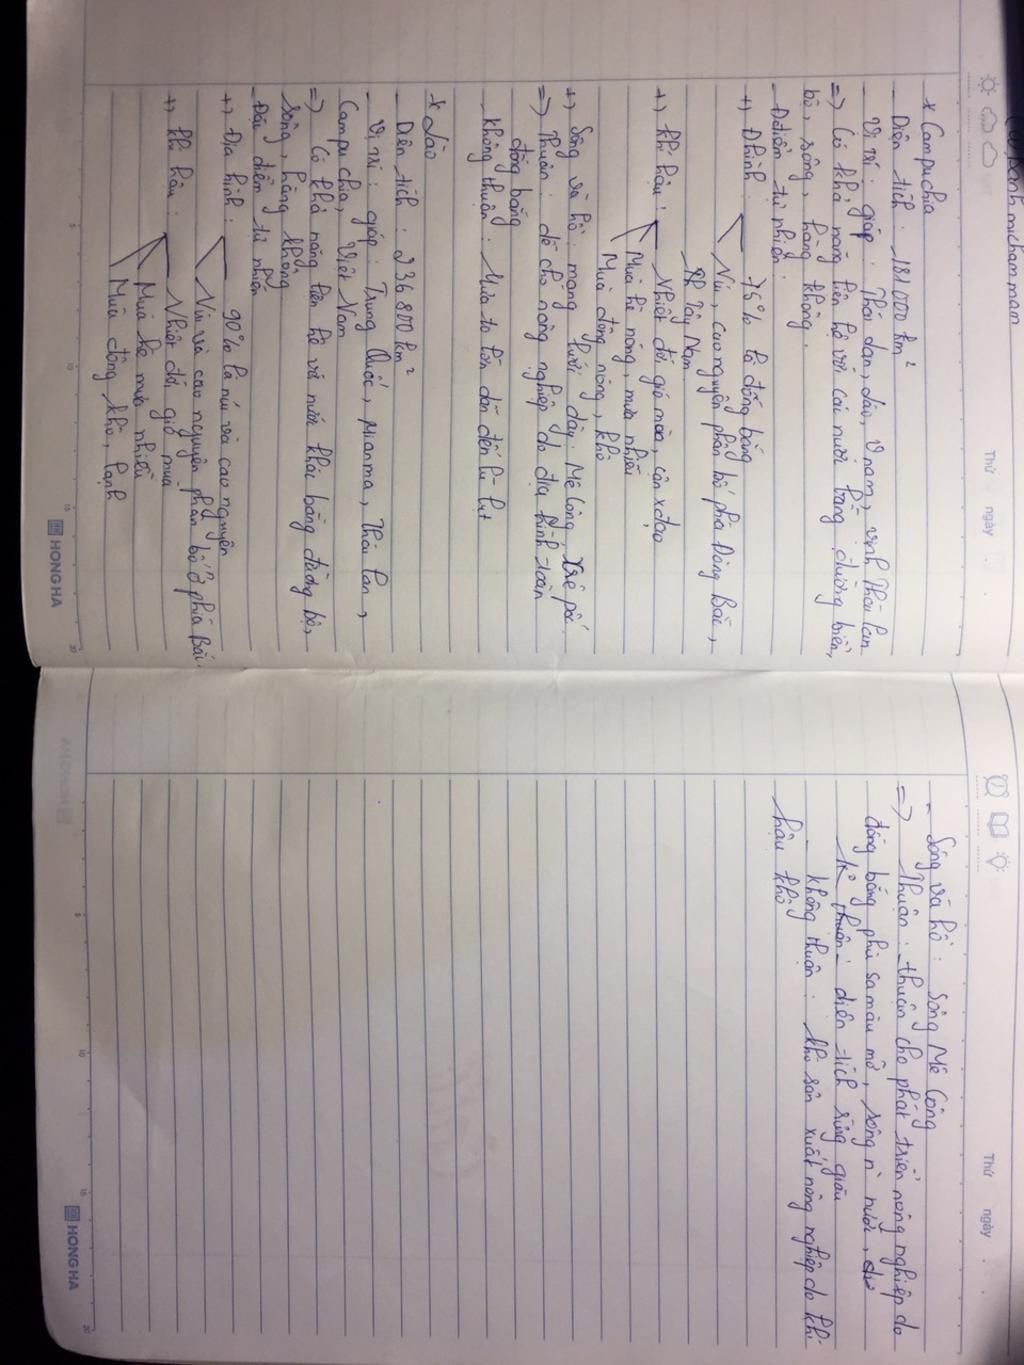 Thứ ngày . .
* Campuchia
- Diện tích : 181000 km²
- Vị trí : giáp : Thái Lan, Lào, V nam, vịnh Thái Lan
=> Có khả năng liên hệ với các nước bằng đường biển,
bộ, sông, hàng không.
- Đđiểm tự nhiên :
+) Đhình : 75% là đồng bằng
Núi, cao nguyên phân bố phía Đông Bắc,
Tây Nam
+) khí hậu : Nhiệt đới gió mùa, cận xđạo
Mùa hè nóng, mưa nhiều
Mùa đông nóng, khô
+) Sông và hồ : mạng lưới dày : Mê Công,
=> Thuận : dễ cho nông nghiệp do địa hình toàn
đồng bằng
- Không thuận : Mưa to lớn dẫn đến lũ lụt
* Lào
- Diện tích : 236 800 km²
- Vị trí : giáp : Trung Quốc, Mianma, Thái Lan,
Campuchia, Việt Nam
=> Có khả năng liên hệ với nước khác bằng đường bộ,
sông, hàng không
- Đặc điểm tự nhiên
+) Địa hình : 90% là núi và cao nguyên
Núi và cao nguyên phân bố ở phía Bắc
+) khí hậu : Nhiệt đới gió mùa
Mùa hè mưa nhiều
Mùa đông khô, lạnh
HONG HA
Thứ ngày . .
- Sông và hồ : Sông Mê Công
=> Thuận : thuận cho phát triển nông nghiệp do
đồng bằng phù sa màu mỡ, sông nì nước,
diện tích rừng giàu
- không thuận : khó sản xuất nông nghiệp do khí
hậu khô
HONG HA